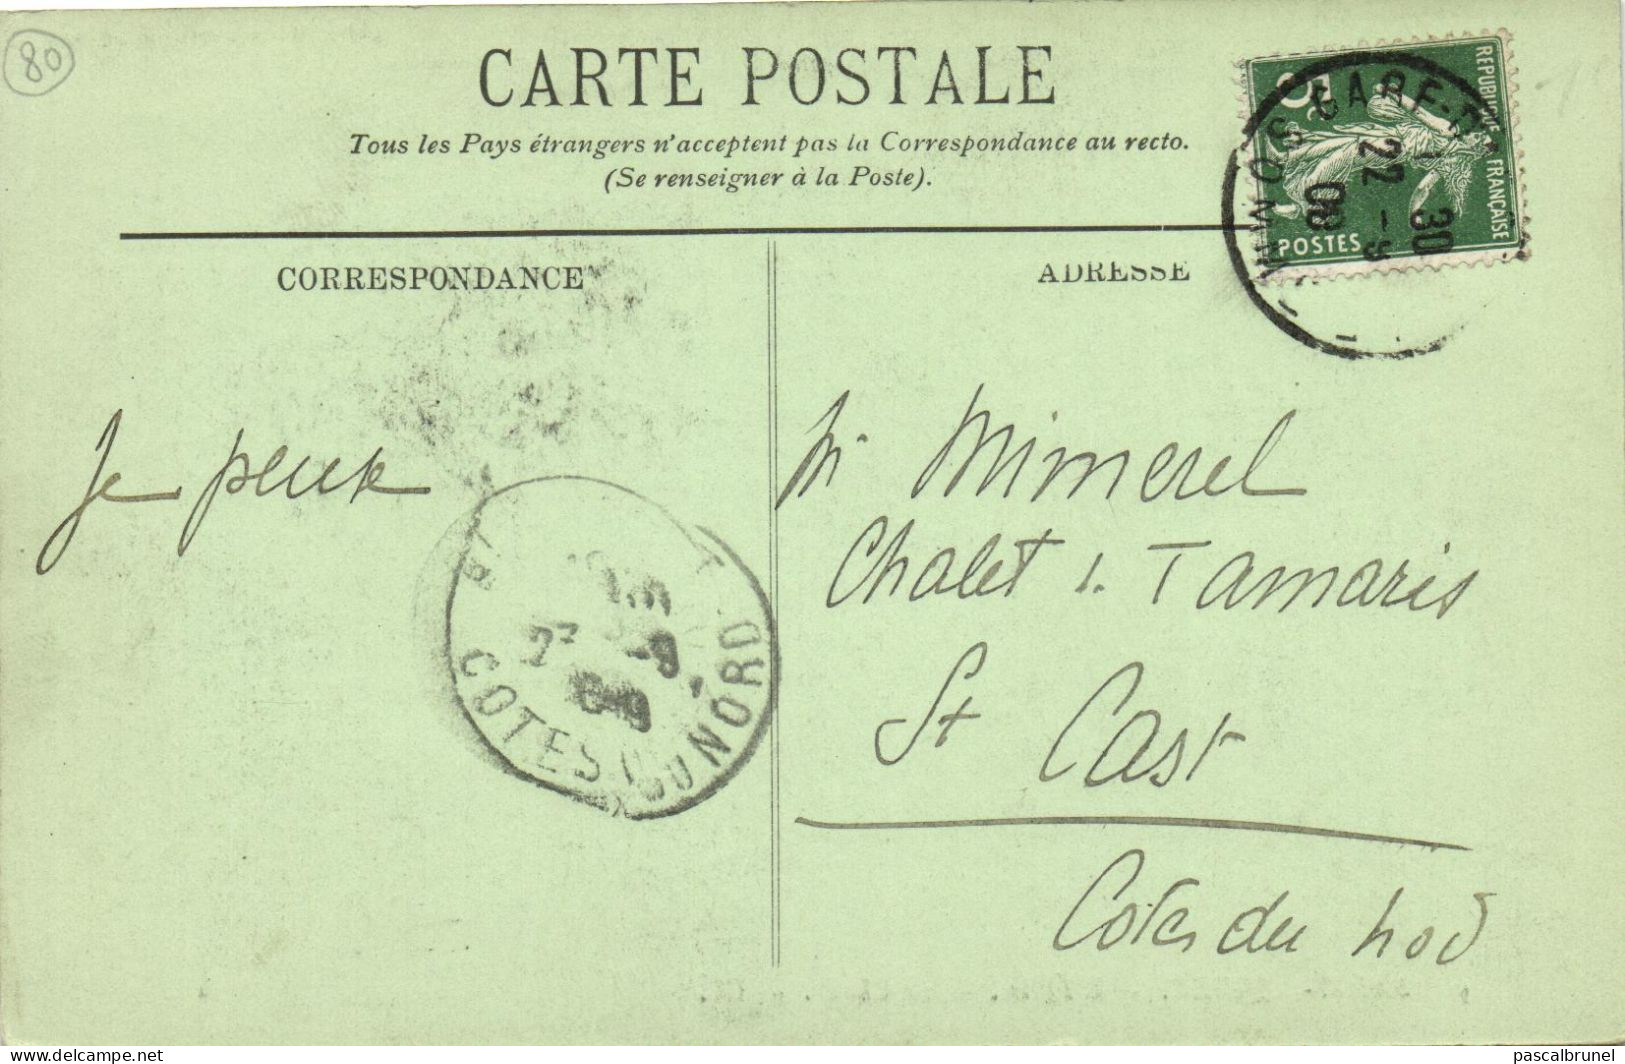 80
CARTE POSTALE
Tous les Pays étrangers n'acceptent pas la Correspondance au recto.
(Se renseigner à la Poste).
REPUBLIQUE FRANÇAISE
POSTES
GARE-D
30
22 - 9
08
SOMME
CORRESPONDANCE
ADRESSE
Je peux
Mimerel
Chalet Tamaris
St Cast
Cotes du nord
COTES DU NORD
-9
pascalbrunel
delcampe.net